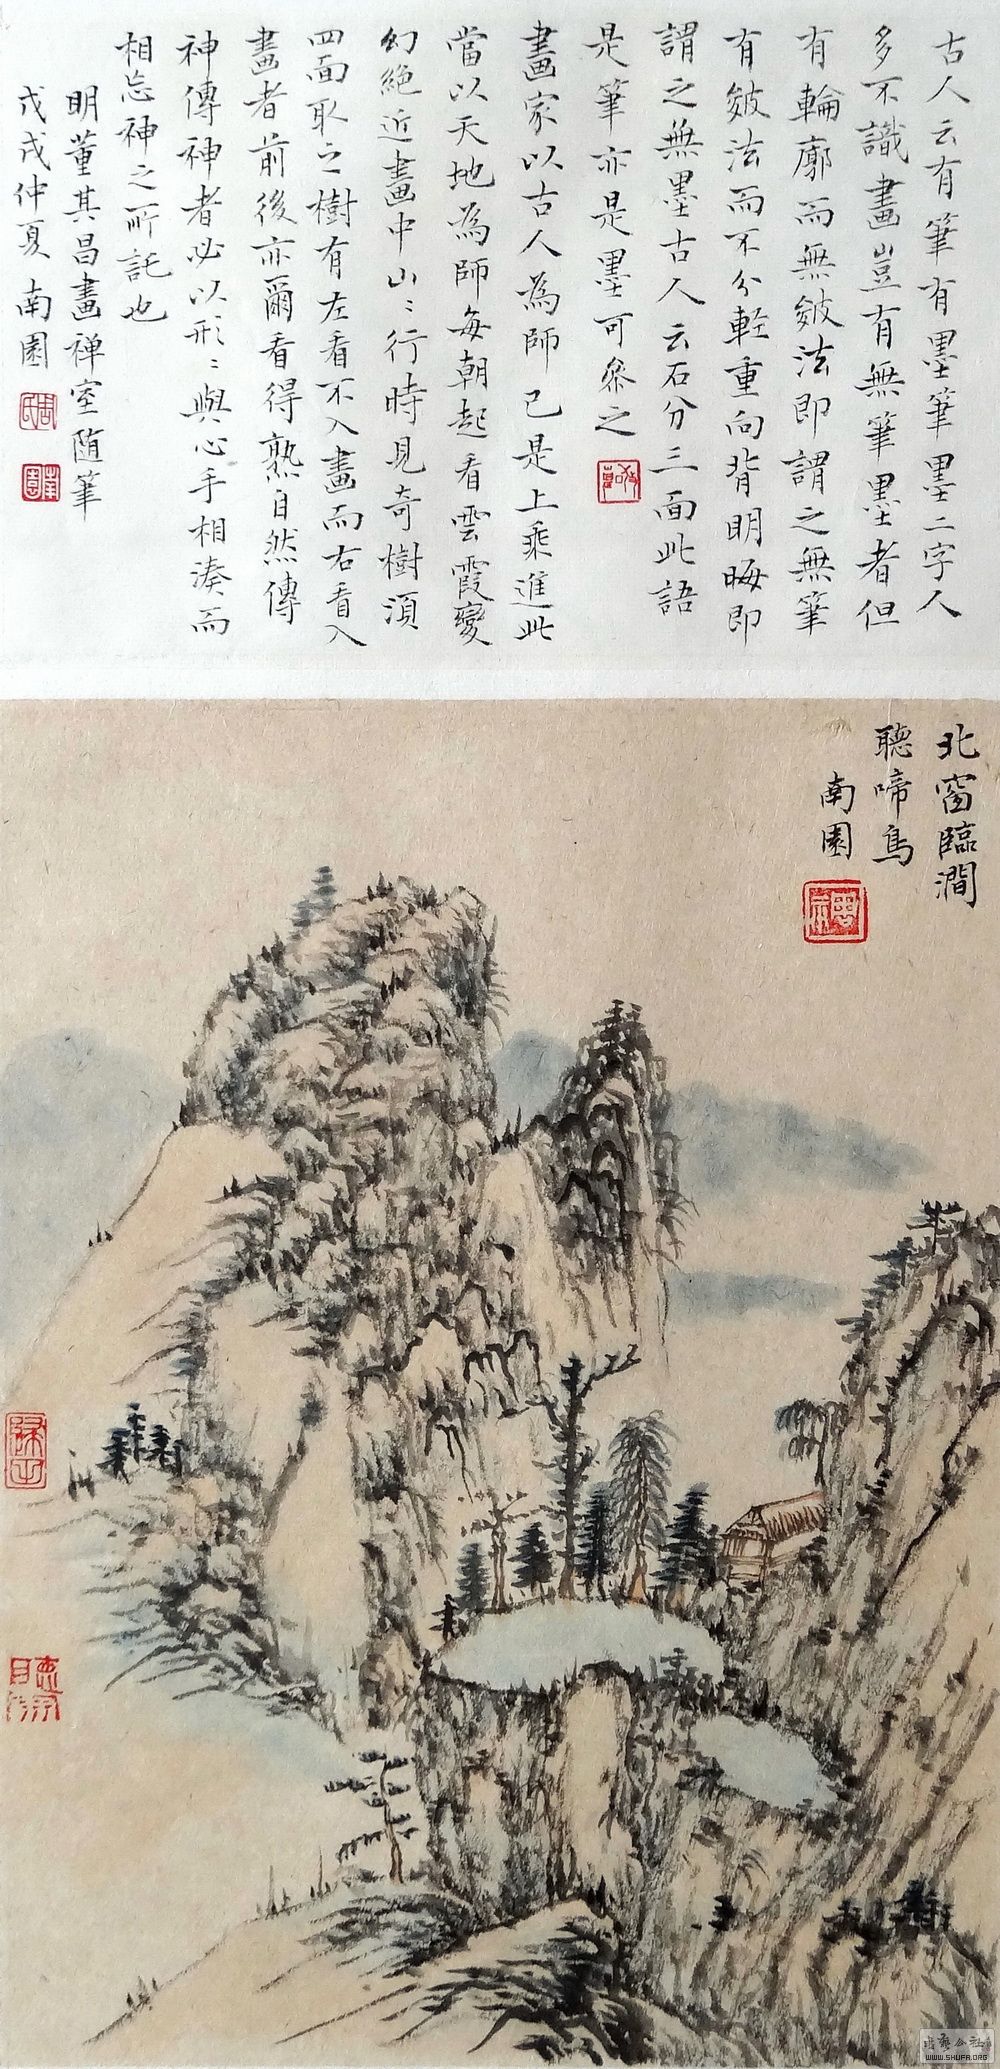 古人云有筆有墨筆墨二字人
多不識畫豈有無筆墨者但
有輪廓而無皴法即謂之無筆
有皴法而不分輕重向背明晦即
謂之無墨古人云石分三面此語
是筆亦是墨可參之
畫家以古人為師已是上乘進此
當以天地為師每朝起看雲霞變
幻絕近畫中山〻行時見奇樹須
四面取之樹有左看不入畫而右看入
畫者前後亦爾看得熟自然傳
神傳神者必以形〻與心手相湊而
相忘神之所託也
明董其昌畫禅室随筆
戊戌仲夏 南園
周氏
南園
北窗臨澗
聽啼鳥
南園
WWW.SHUFA.ORG